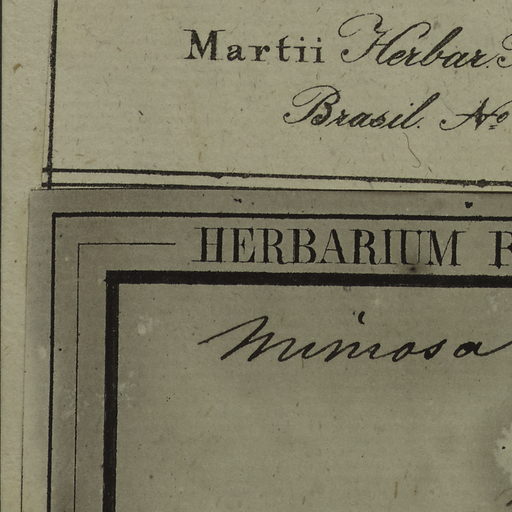 Martii Herbar.
Brasil. No
HERBARIUM
Mimosa